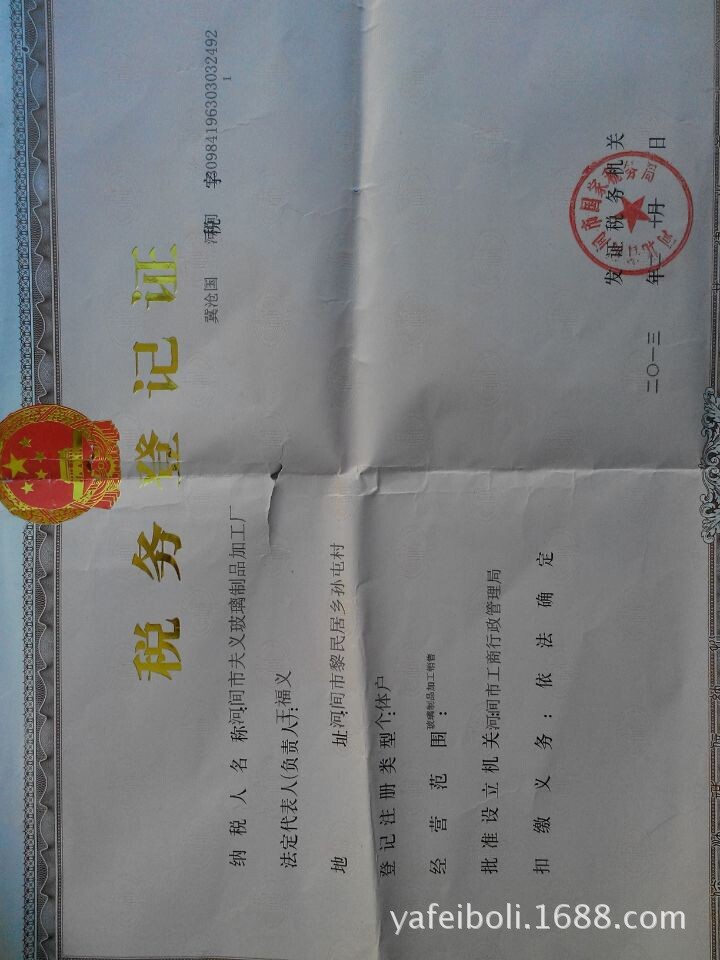 税务登记证
冀沧国 税 字
河间
13098419630303032492
1
纳税人名称:河间市夫义玻璃制品加工厂
法定代表人(负责人):王福义
地 址:河间市黎民居乡孙屯村
登记注册类型:个体户
经营范围:玻璃制品加工销售
批准设立机关:河间市工商行政管理局
扣缴义务:依法确定
发证税务机关
二〇一三年 十月 日
yafeiboli.1688.com